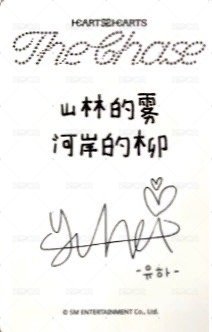 HEARTS2HEARTS
The Chase
山林的雾
河岸的柳
Yuha
-유하-
© SM ENTERTAINMENT Co., Ltd.